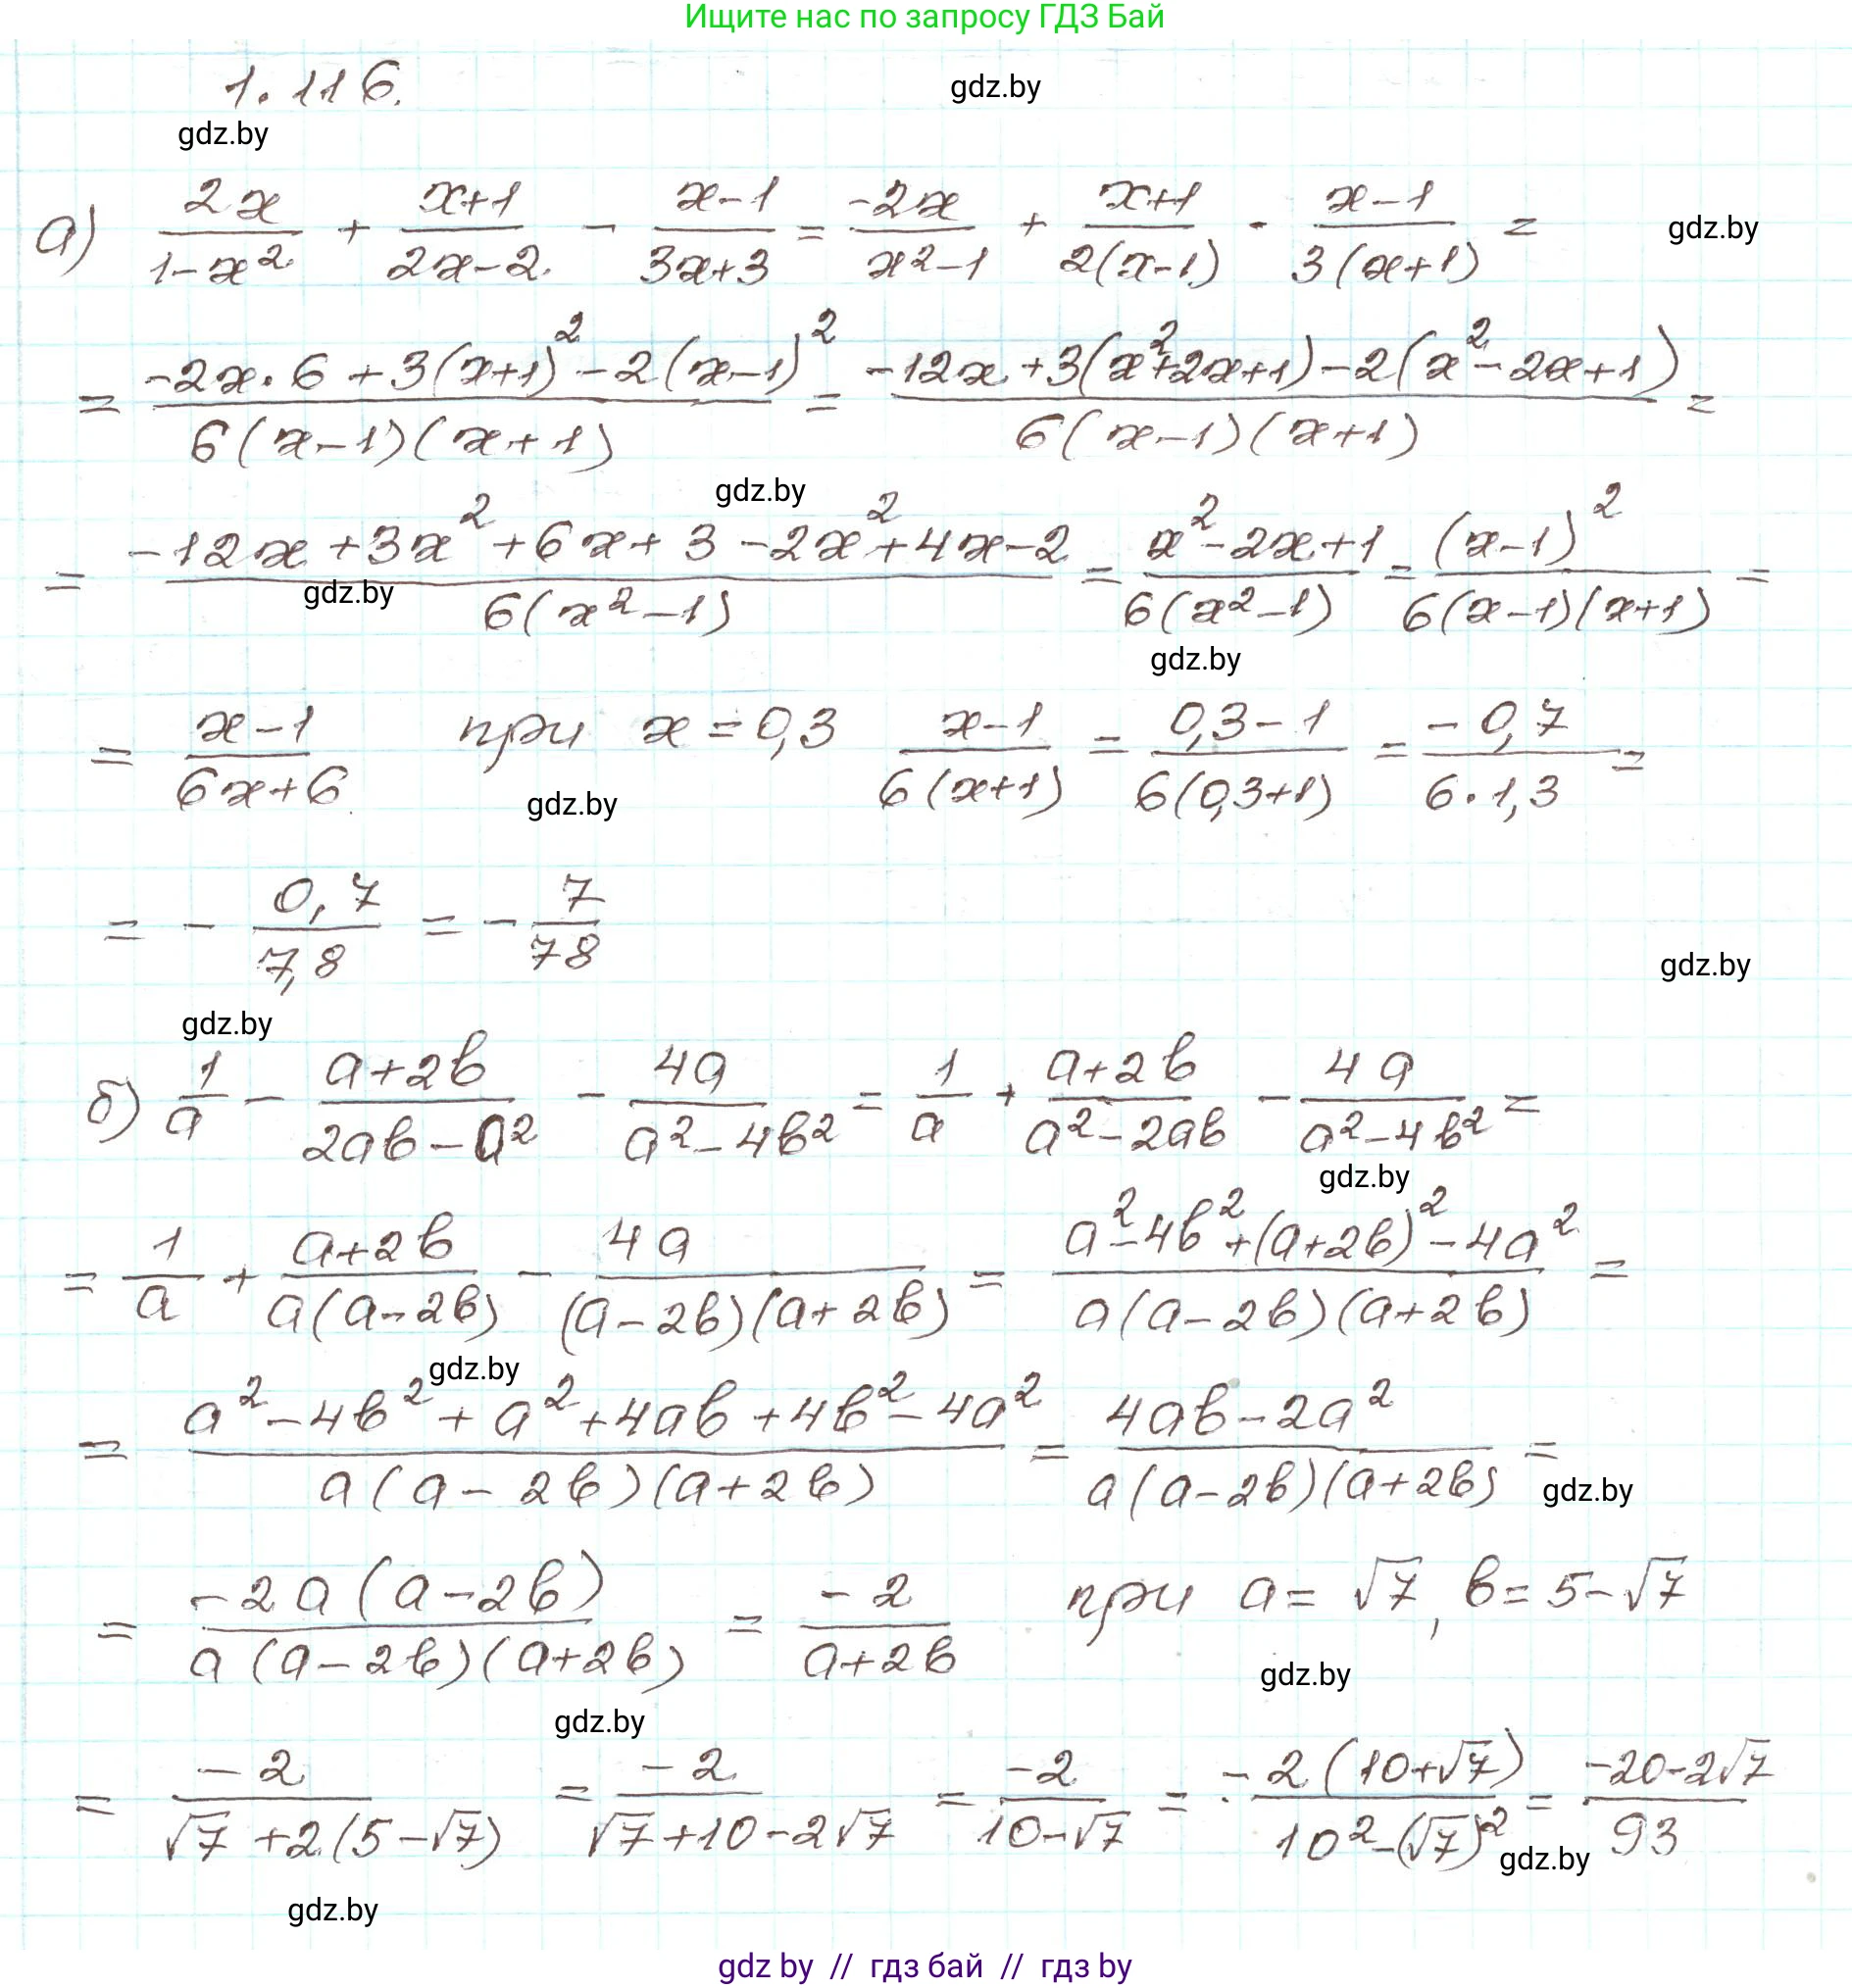 Ищите нас по запросу ГДЗ Бай
1.116.
gdz.by
gdz.by
а) 2x/(1-x²) + (x+1)/(2x-2) - (x-1)/(3x+3) = -2x/(x²-1) + (x+1)/(2(x-1)) - (x-1)/(3(x+1)) =
gdz.by
= (-2x·6+3(x+1)²-2(x-1)²)/(6(x-1)(x+1)) = (-12x+3(x²+2x+1)-2(x²-2x+1))/(6(x-1)(x+1)) =
gdz.by
= (-12x+3x²+6x+3-2x²+4x-2)/(6(x²-1)) = (x²-2x+1)/(6(x²-1)) = (x-1)²/(6(x-1)(x+1)) =
gdz.by
gdz.by
= (x-1)/(6x+6) при x=0,3 (x-1)/(6(x+1)) = (0,3-1)/(6(0,3+1)) = -0,7/(6·1,3) =
gdz.by
= - 0,7/7,8 = - 7/78
gdz.by
gdz.by
б) 1/a - (a+2b)/(2ab-a²) - 4a/(a²-4b²) = 1/a + (a+2b)/(a²-2ab) - 4a/(a²-4b²) =
gdz.by
= 1/a + (a+2b)/(a(a-2b)) - 4a/((a-2b)(a+2b)) = (a²-4b²+(a+2b)²-4a²)/(a(a-2b)(a+2b)) =
gdz.by
= (a²-4b²+a²+4ab+4b²-4a²)/(a(a-2b)(a+2b)) = (4ab-2a²)/(a(a-2b)(a+2b)) =
gdz.by
= -2a(a-2b)/(a(a-2b)(a+2b)) = -2/(a+2b) при a=√7, b=5-√7
gdz.by
gdz.by
= -2/(√7+2(5-√7)) = -2/(√7+10-2√7) = -2/(10-√7) = -2(10+√7)/(10²-(√7)²) = (-20-2√7)/93
gdz.by
gdz.by
gdz by // гдз бай // гдз by